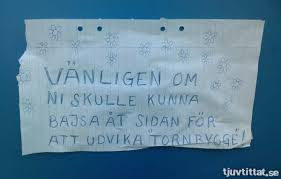 VÄNLIGEN OM
NI SKULLE KUNNA
BAJSA ÅT SIDAN FÖR
ATT UDVIKA TORNBYGGE!
tjuvtittat.se